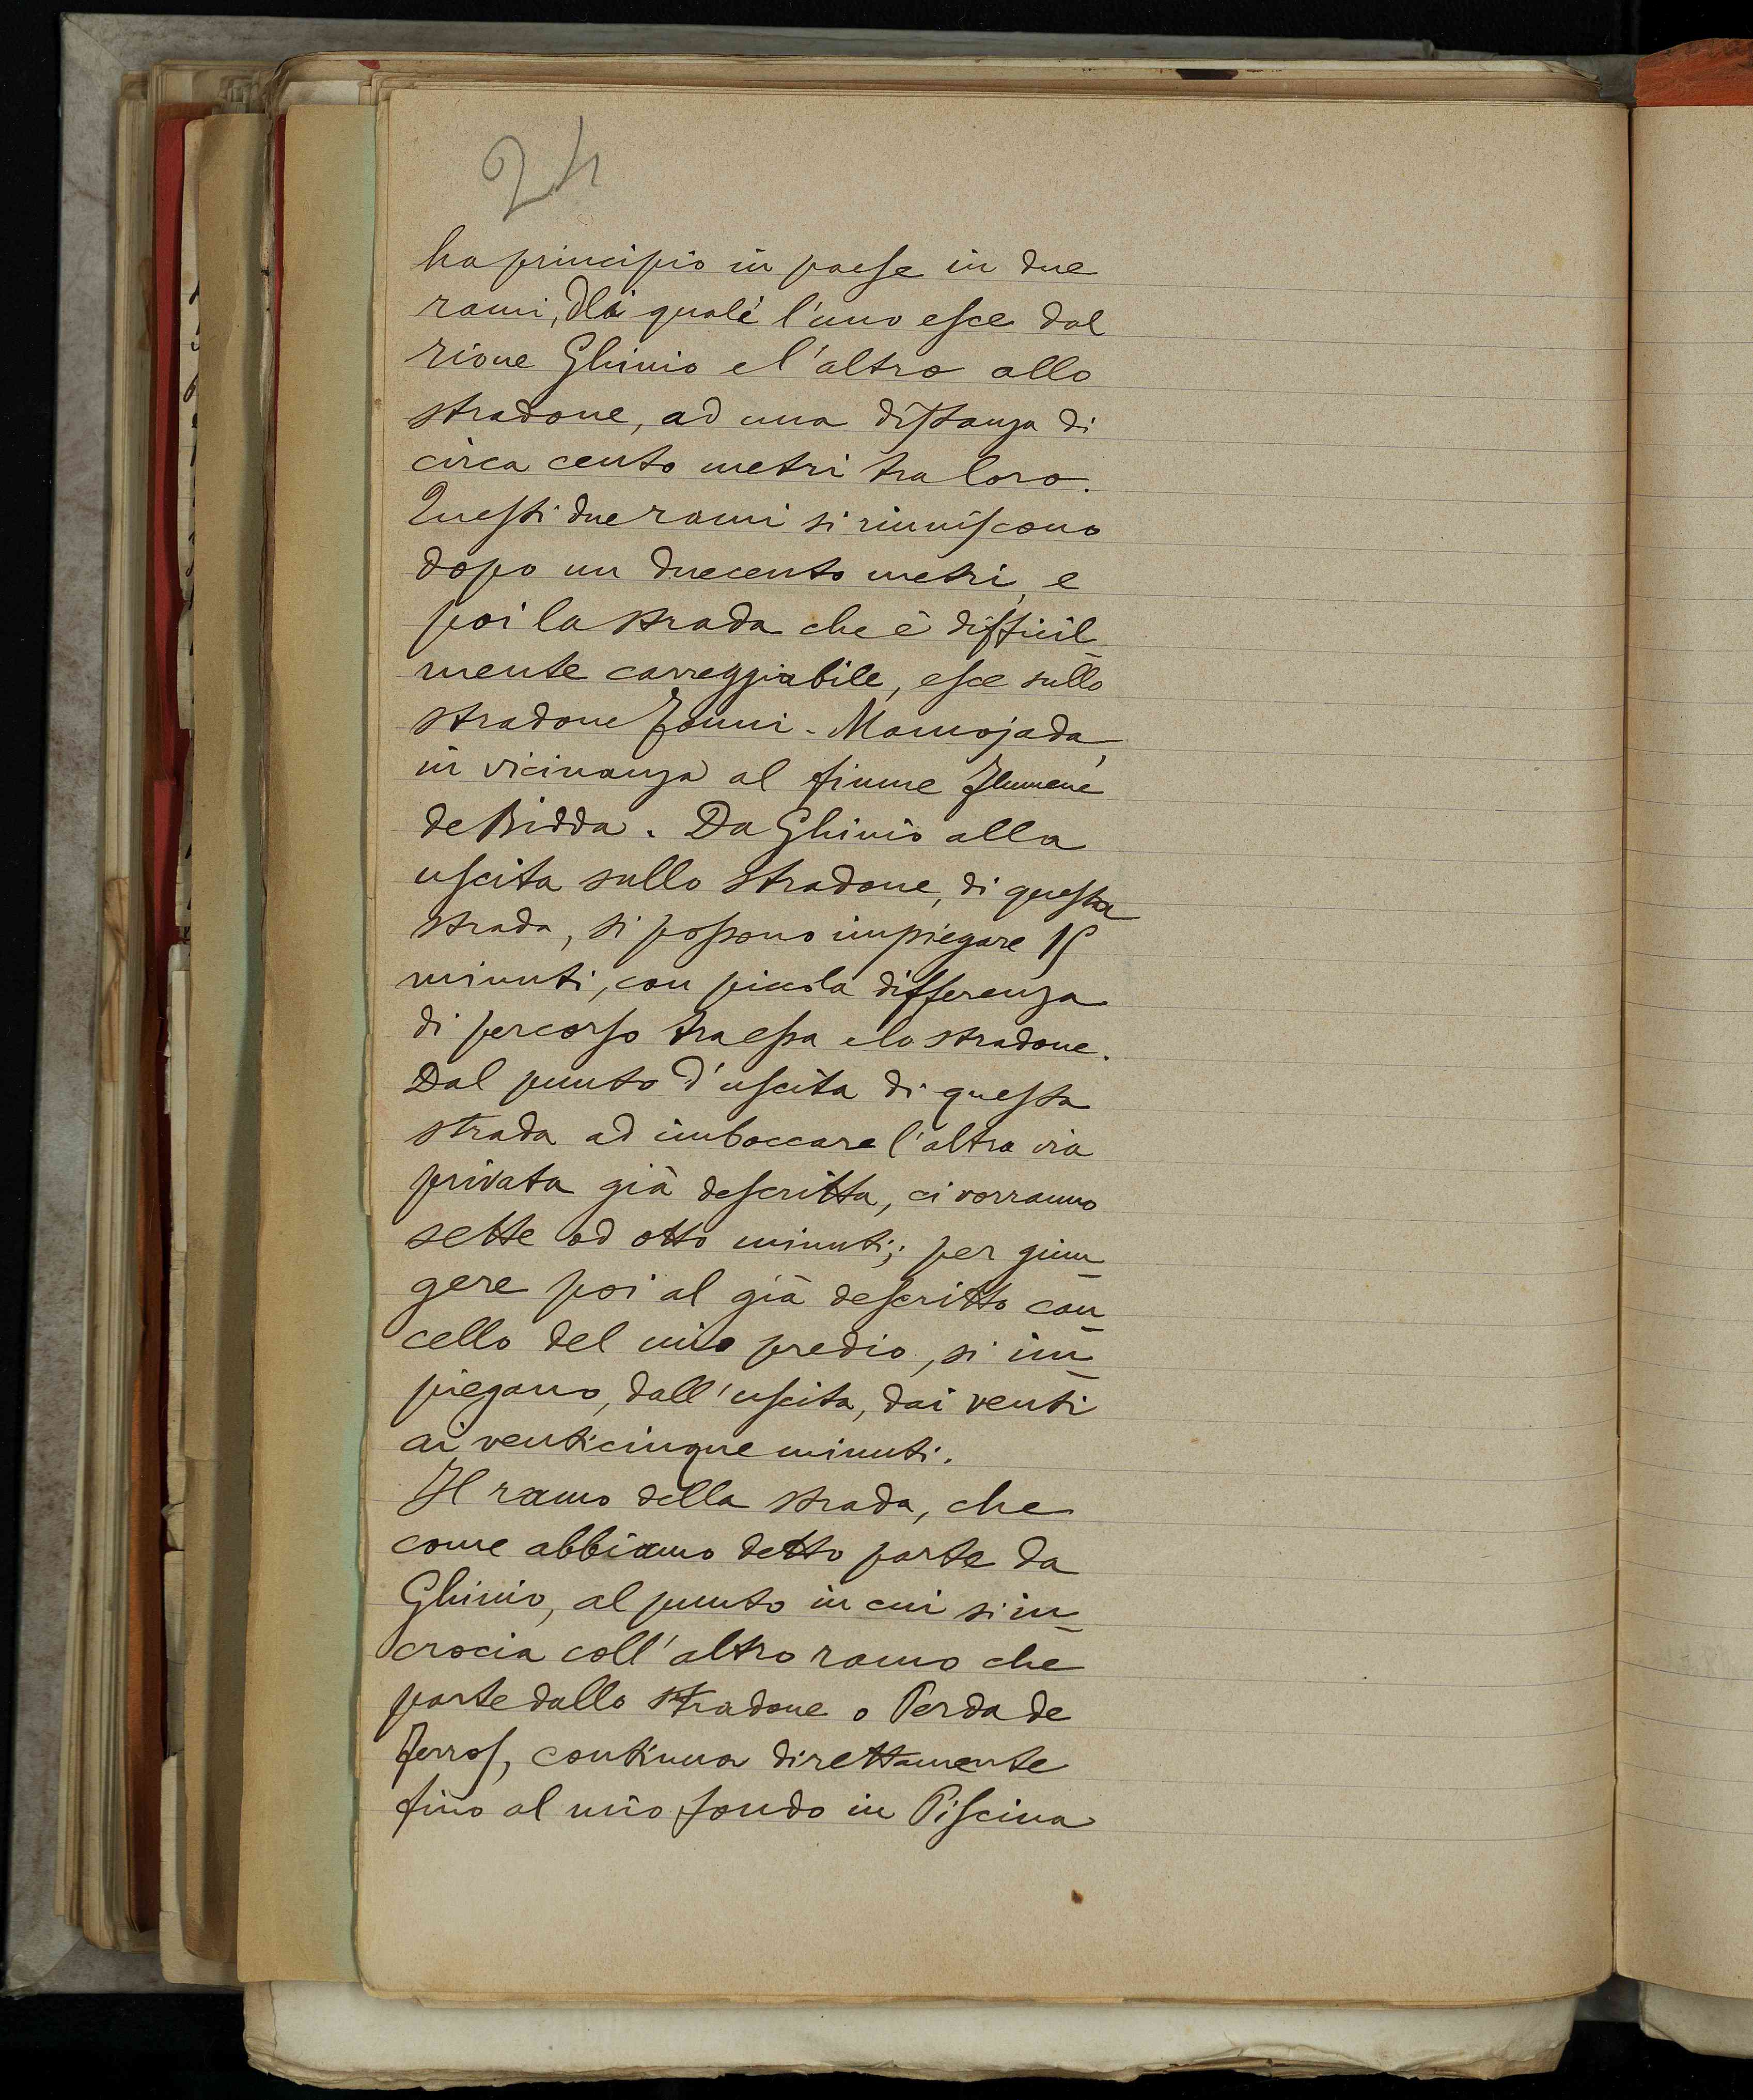 24
ha principio in paese in due
rami, dei quali l'uno esce dal
rione Ghinio e l'altro allo
stradone, ad una distanza di
circa cento metri tra loro.
Questi due rami si riuniscono
dopo un duecento metri, e
poi la strada che è difficil-
mente carreggiabile, esce sullo
stradone Fonni-Mamojada,
in vicinanza al fiume Flumene
de Bidda. Da Ghinio alla
uscita sullo stradone, di questa
strada, si possono impiegare 15
minuti, con piccola differenza
di percorso tra essa e lo stradone.
Dal punto d'uscita di questa
strada ad imboccare l'altra via
privata già descritta, ci vorranno
sette od otto minuti; per giun-
gere poi al già descritto can-
cello del mio predio, si im-
piegano, dall'uscita, dai venti
ai venticinque minuti.
Il ramo della strada, che
come abbiamo detto parte da
Ghinio, al punto in cui si in-
crocia coll'altro ramo che
parte dallo stradone o Perda de
Ferros, continua direttamente
fino al mio fondo in Piscina